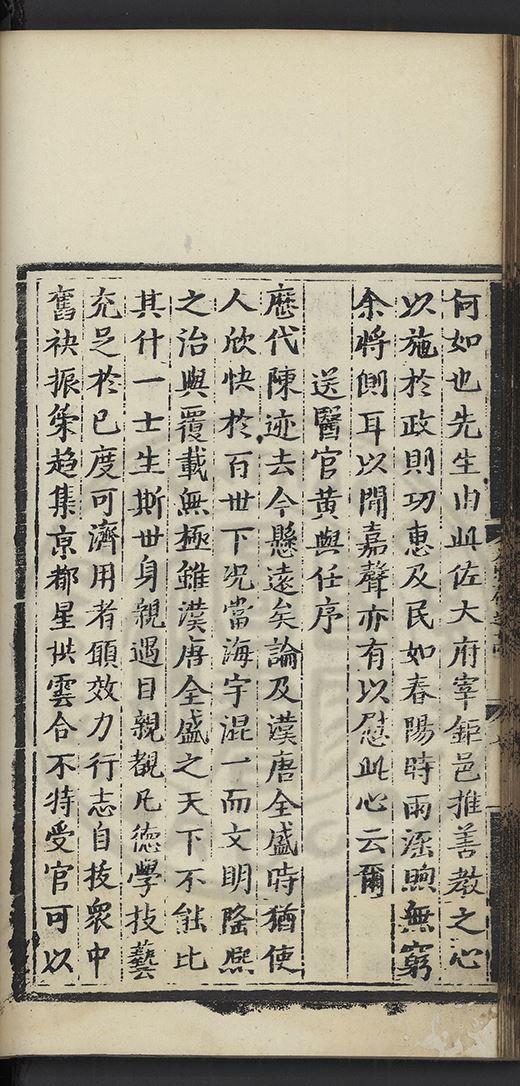 何如也先生由此佐大府宰鉅邑推善教之心
以施於政則功惠及民如春陽時雨濡煦無窮
余將側耳以聞嘉聲亦有以慰此心云爾
送醫官黃與任序
歷代陳迹去今懸遠矣論及漢唐全盛時猶使
人欣快於百世下況當海宇混一而文明隆熙
之治與覆載無極雖漢唐全盛之天下不能比
其什一士生斯世身親遇目親覩凡德學技藝
充足於已度可濟用者願效力行志自拔衆中
奮袂振策趨集京都星拱雲合不特受官可以